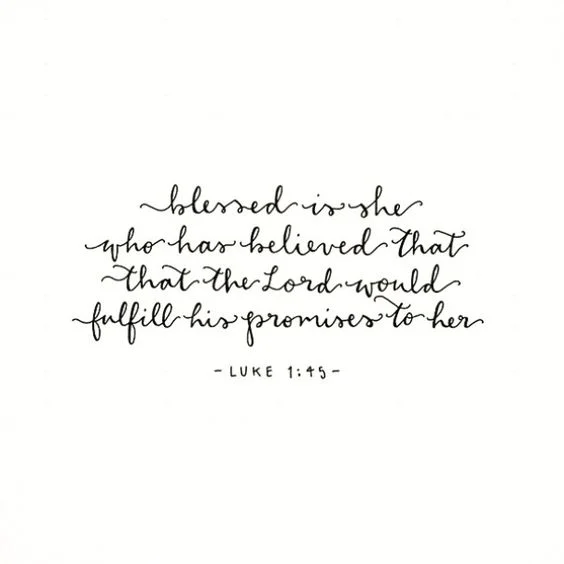 blessed is she
who has believed that
that the Lord would
fulfill his promises to her
- LUKE 1:45 -